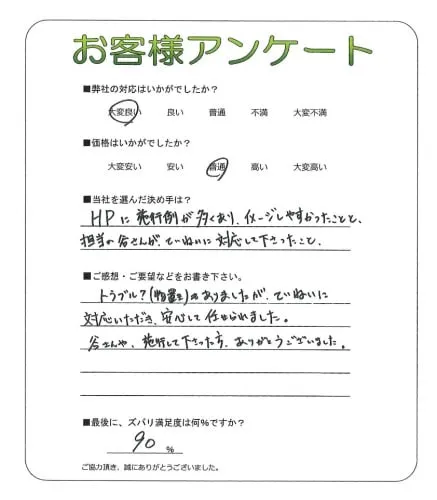 お客様アンケート
■弊社の対応はいかがでしたか？
大変良い 良い 普通 不満 大変不満
■価格はいかがでしたか？
大変安い 安い 普通 高い 大変高い
■当社を選んだ決め手は？
HPに施行例が多くあり、イメージしやすかったことと、
担当の谷さんが、ていねいに対応して下さったこと。
■ご感想・ご要望などをお書き下さい。
トラブル？(物置き)もありましたが、ていねいに
対応いただき、安心して任せられました。
谷さんや、施行して下さった方、ありがとうございました。
■最後に、ズバリ満足度は何%ですか？
90 %
ご協力頂き、誠にありがとうございました。